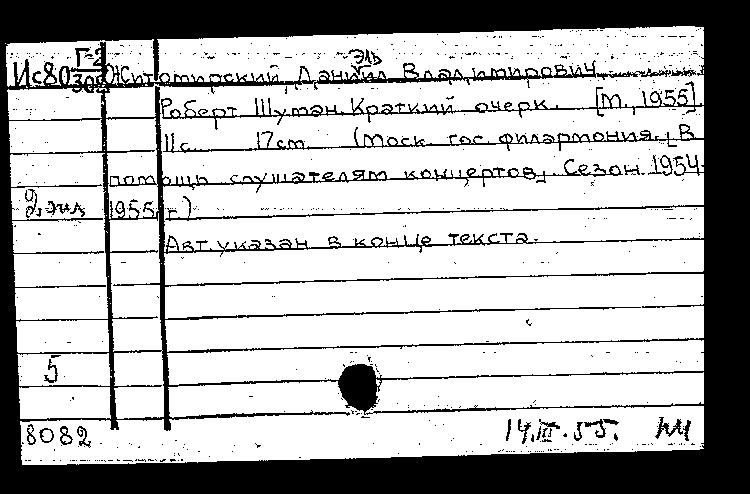 эль
Ис80 Г-2/302 Житомирский, Даниил Владимирович.
Роберт Шуман. Краткий очерк. [М., 1955]
11с. 17см. (Моск. гос. филармония. „В
помощь слушателям концертов„. Сезон 1954-
2 экз. 1955 г.)
Авт. указан в конце текста.
5
8082 14.III.55.